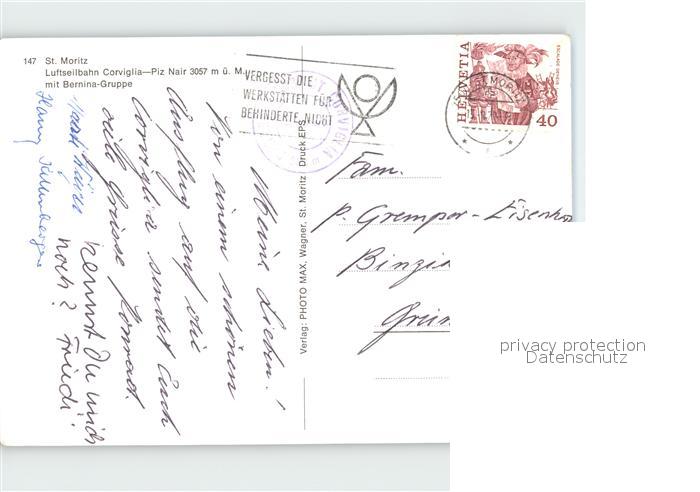 147 St. Moritz
Luftseilbahn Corviglia—Piz Nair 3057 m ü. M.
mit Bernina-Gruppe
VERGESST DIE
WERKSTÄTTEN FÜR
BEHINDERTE NICHT
HELVETIA
40
Meine Lieben!
Von einem schönen
Ausflug auf die
Corviglia sendet Euch
viele Grüsse Konrad.
kennst Du mich
noch? Friedi
Verlag: PHOTO MAX, Wagner, St. Moritz Druck EPS
Fam.
P. Gremper-
privacy protection
Datenschutz